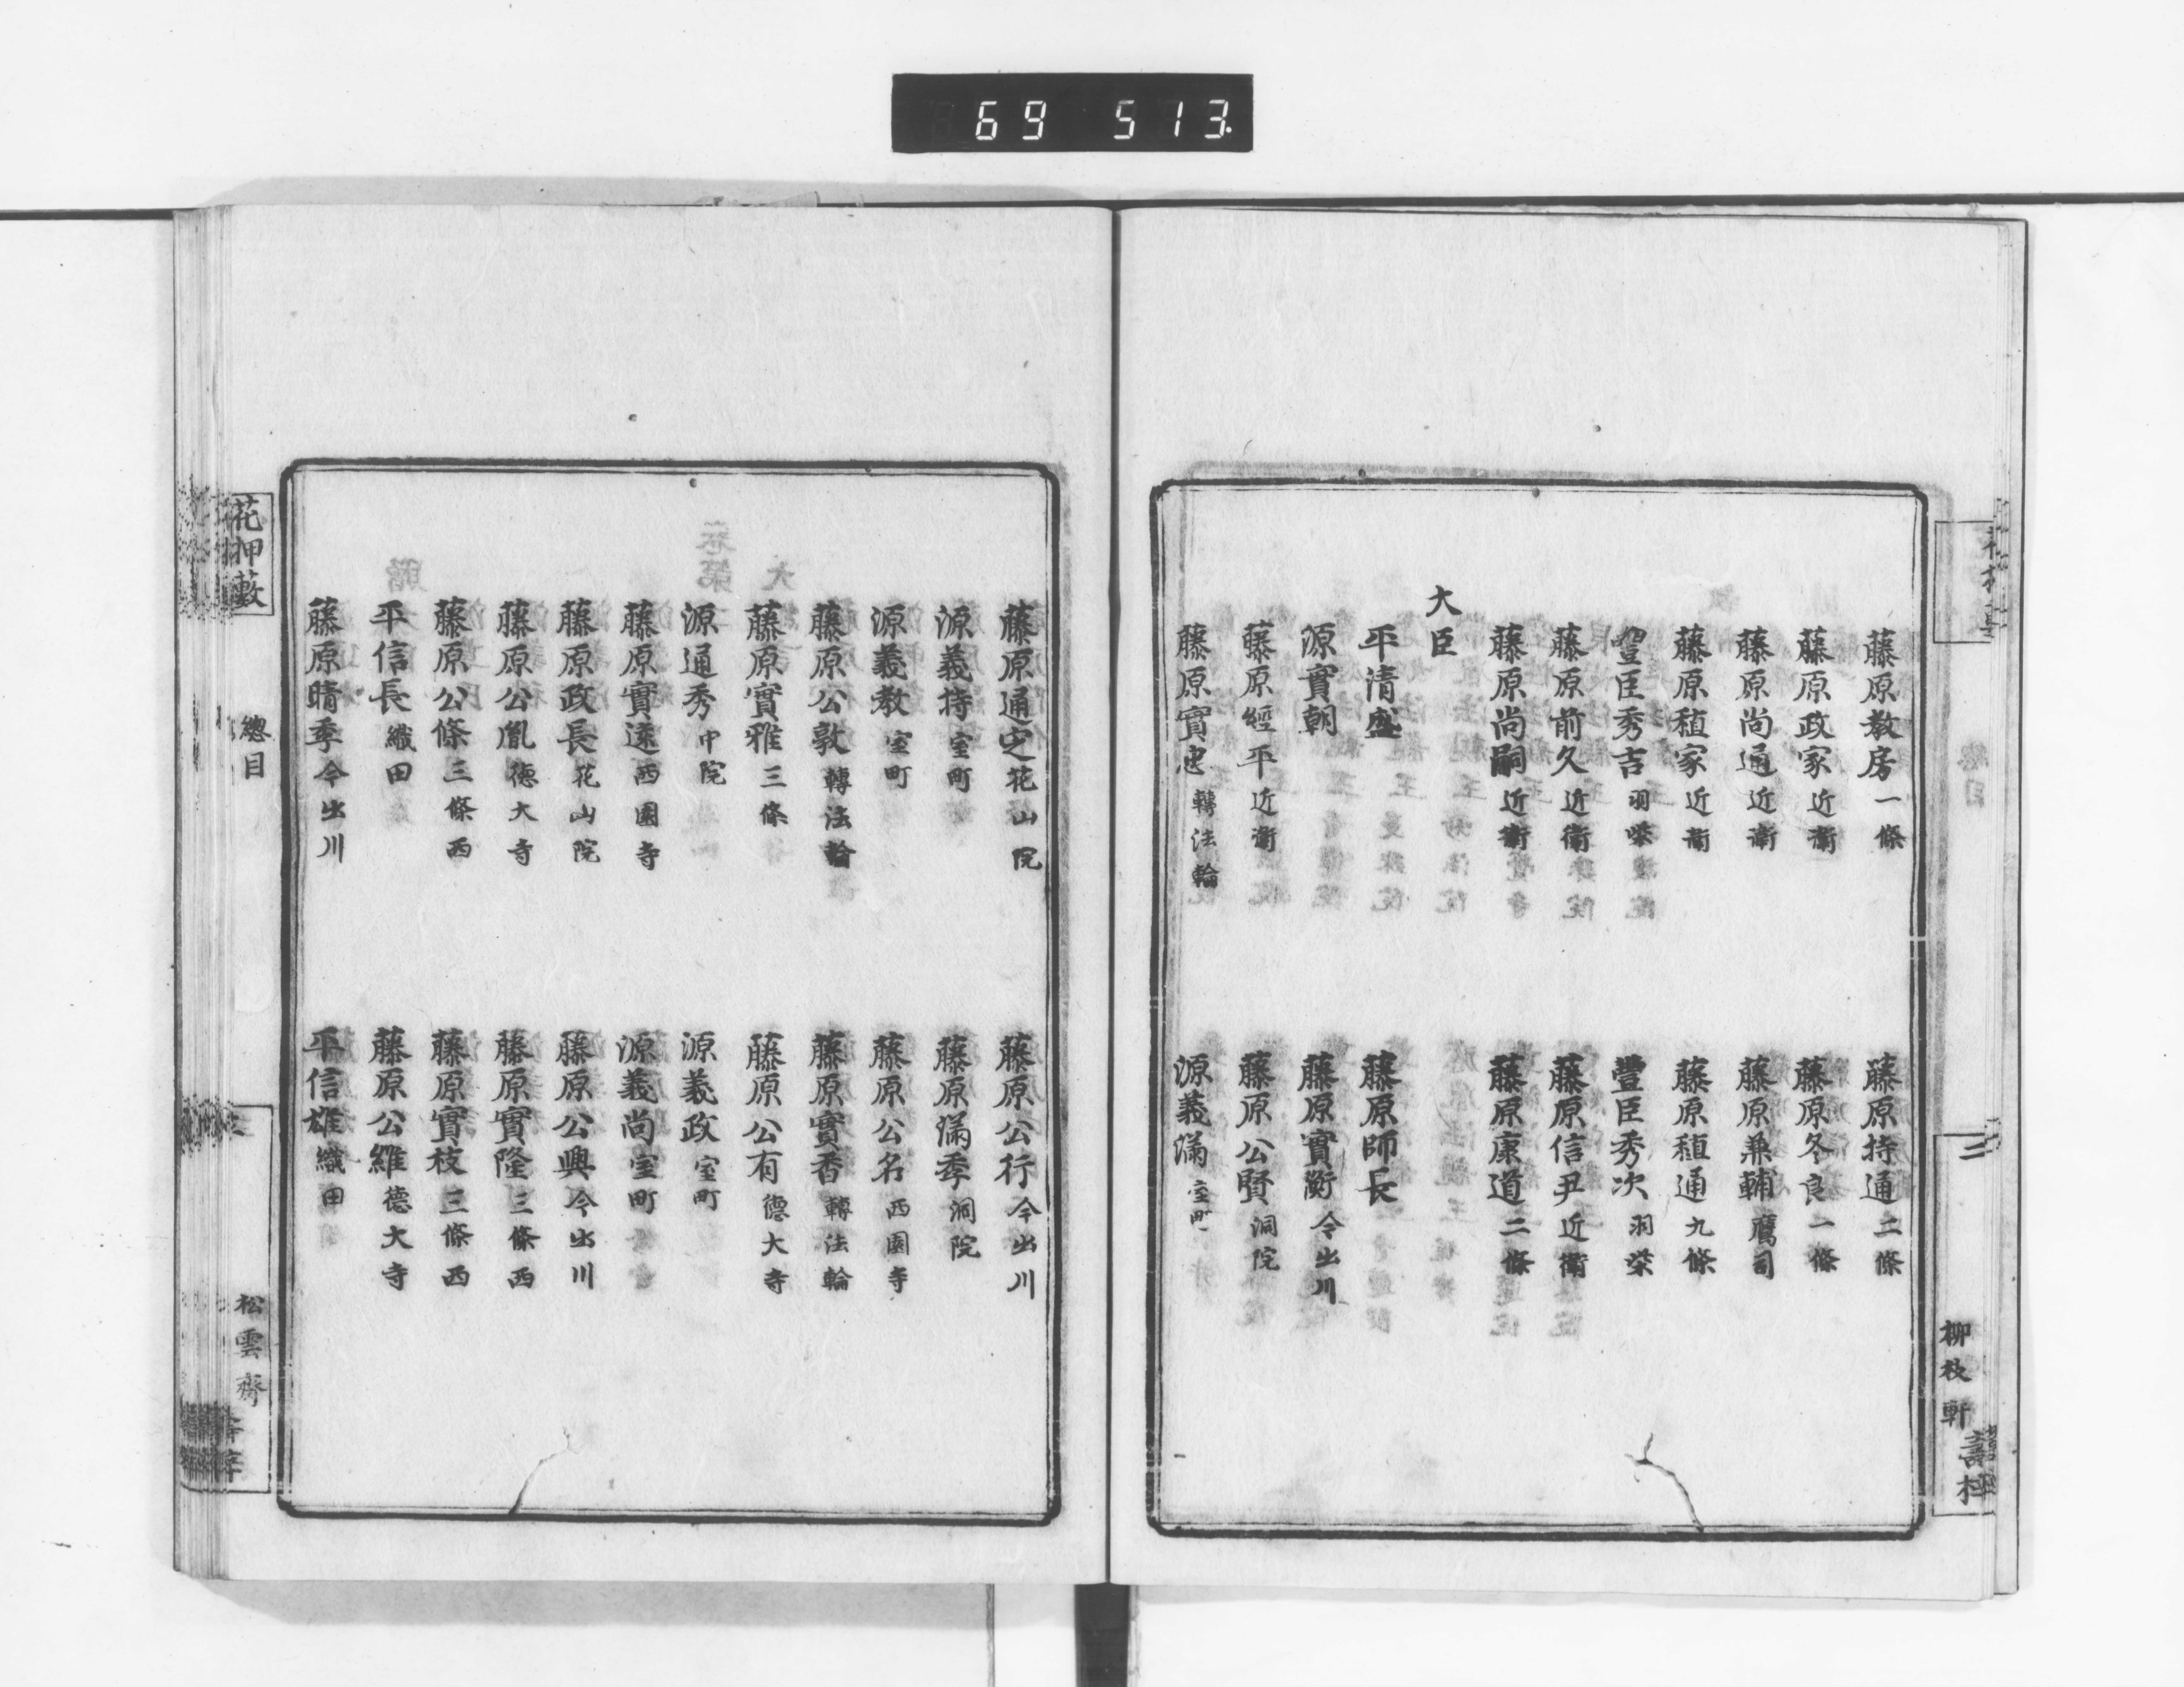 69 513.
藤原教房 一條
藤原持通 二條
藤原政家 近衞
藤原冬良 一條
藤原尚通 近衞
藤原兼輔 鷹司
藤原稙家 近衞
藤原稙通 九條
豐臣秀吉 羽柴
豐臣秀次 羽柴
藤原前久 近衞
藤原信尹 近衞
藤原尚嗣 近衞
藤原康道 二條
大臣
平清盛
藤原師長
源實朝
藤原實衡 今出川
藤原經平 近衞
藤原公賢 洞院
藤原實忠 轉法輪
源義滿 室町
三
柳枝軒
藤原通定 花山院
藤原公行 今出川
源義持 室町
藤原滿季 洞院
源義教 室町
藤原公名 西園寺
藤原公敦 轉法輪
藤原實香 轉法輪
藤原實雅 三條
藤原公有 德大寺
源通秀 中院
源義政 室町
藤原實遠 西園寺
源義尚 室町
藤原政長 花山院
藤原公興 今出川
藤原公胤 德大寺
藤原實隆 三條西
藤原公條 三條西
藤原實枝 三條西
平信長 織田
藤原公維 德大寺
藤原晴季 今出川
平信雄 織田
花押藪
總目
松雲齋